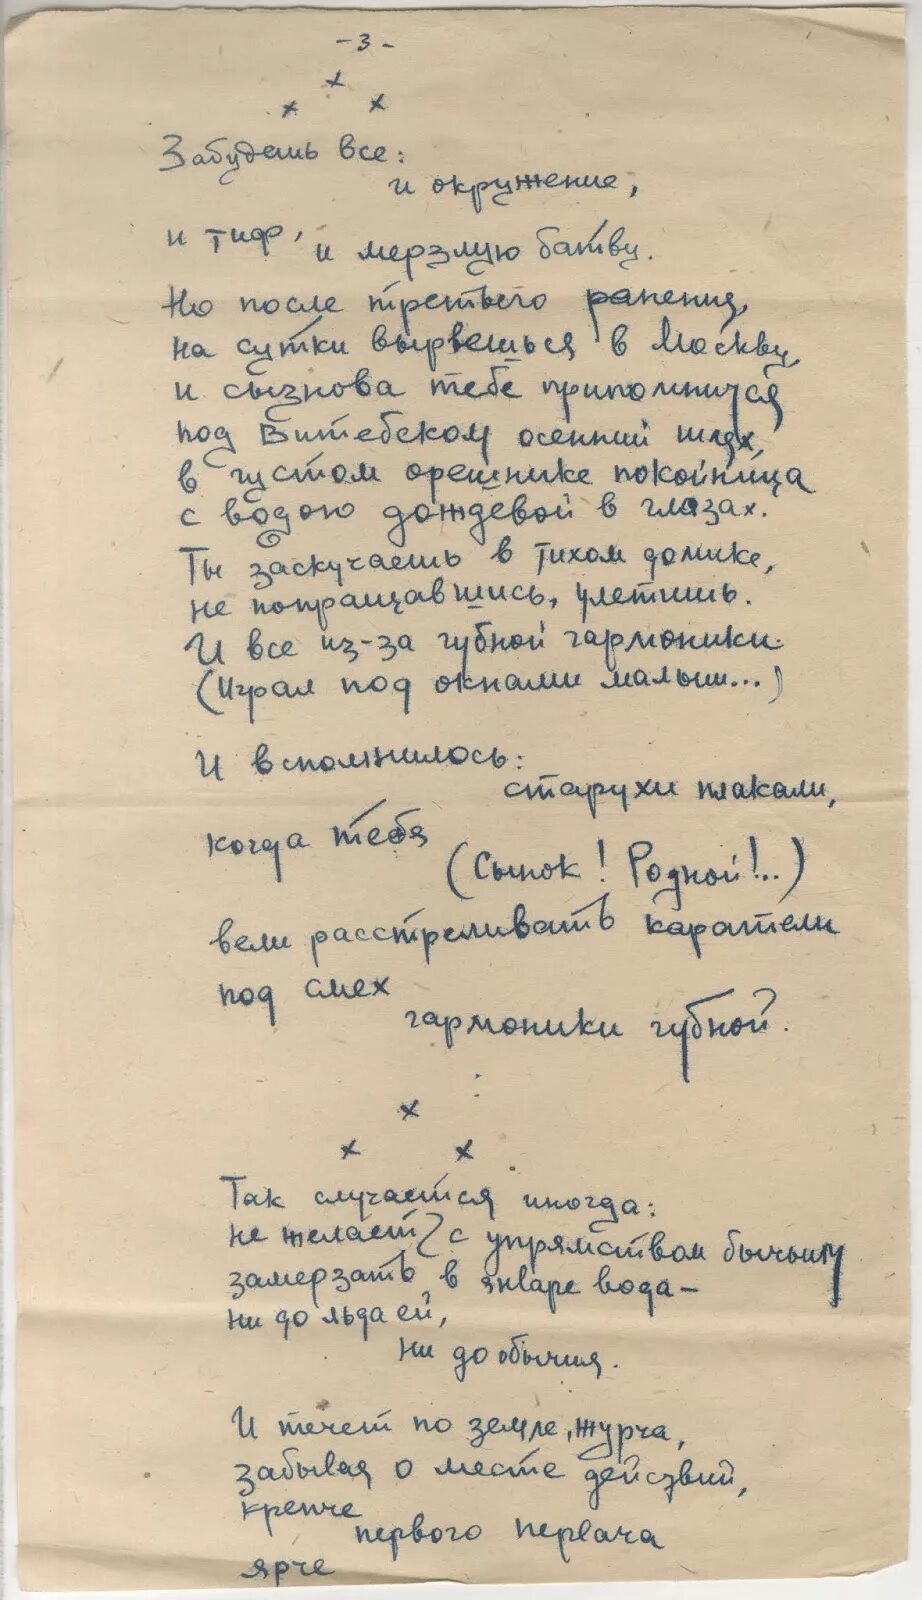 -3-
x
x x
Забудешь все:
и окружение,
и тиф, и мерзлую ботву.
Но после третьего ранения,
на сутки вырвешься в Москву,
и сызнова тебе припомнится
под Витебском осенний шлях,
в густом орешнике покойница
с водою дождевой в глазах.
Ты заскучаешь в тихом домике,
не попращавшись, улетишь.
И все из-за губной гармоники.
(Играл под окнами малыш...)
И вспомнилось:
старухи плакали,
когда тебя
(Сынок! Родной!..)
вели расстреливать каратели
под смех
гармоники губной.
x
x x
Так случается иногда:
не желает с упрямством бычьим
замерзать в январе вода —
ни до льда ей,
ни до обычия.
И течет по земле, журча,
забывая о месте действий,
крепче
первого первача
ярче